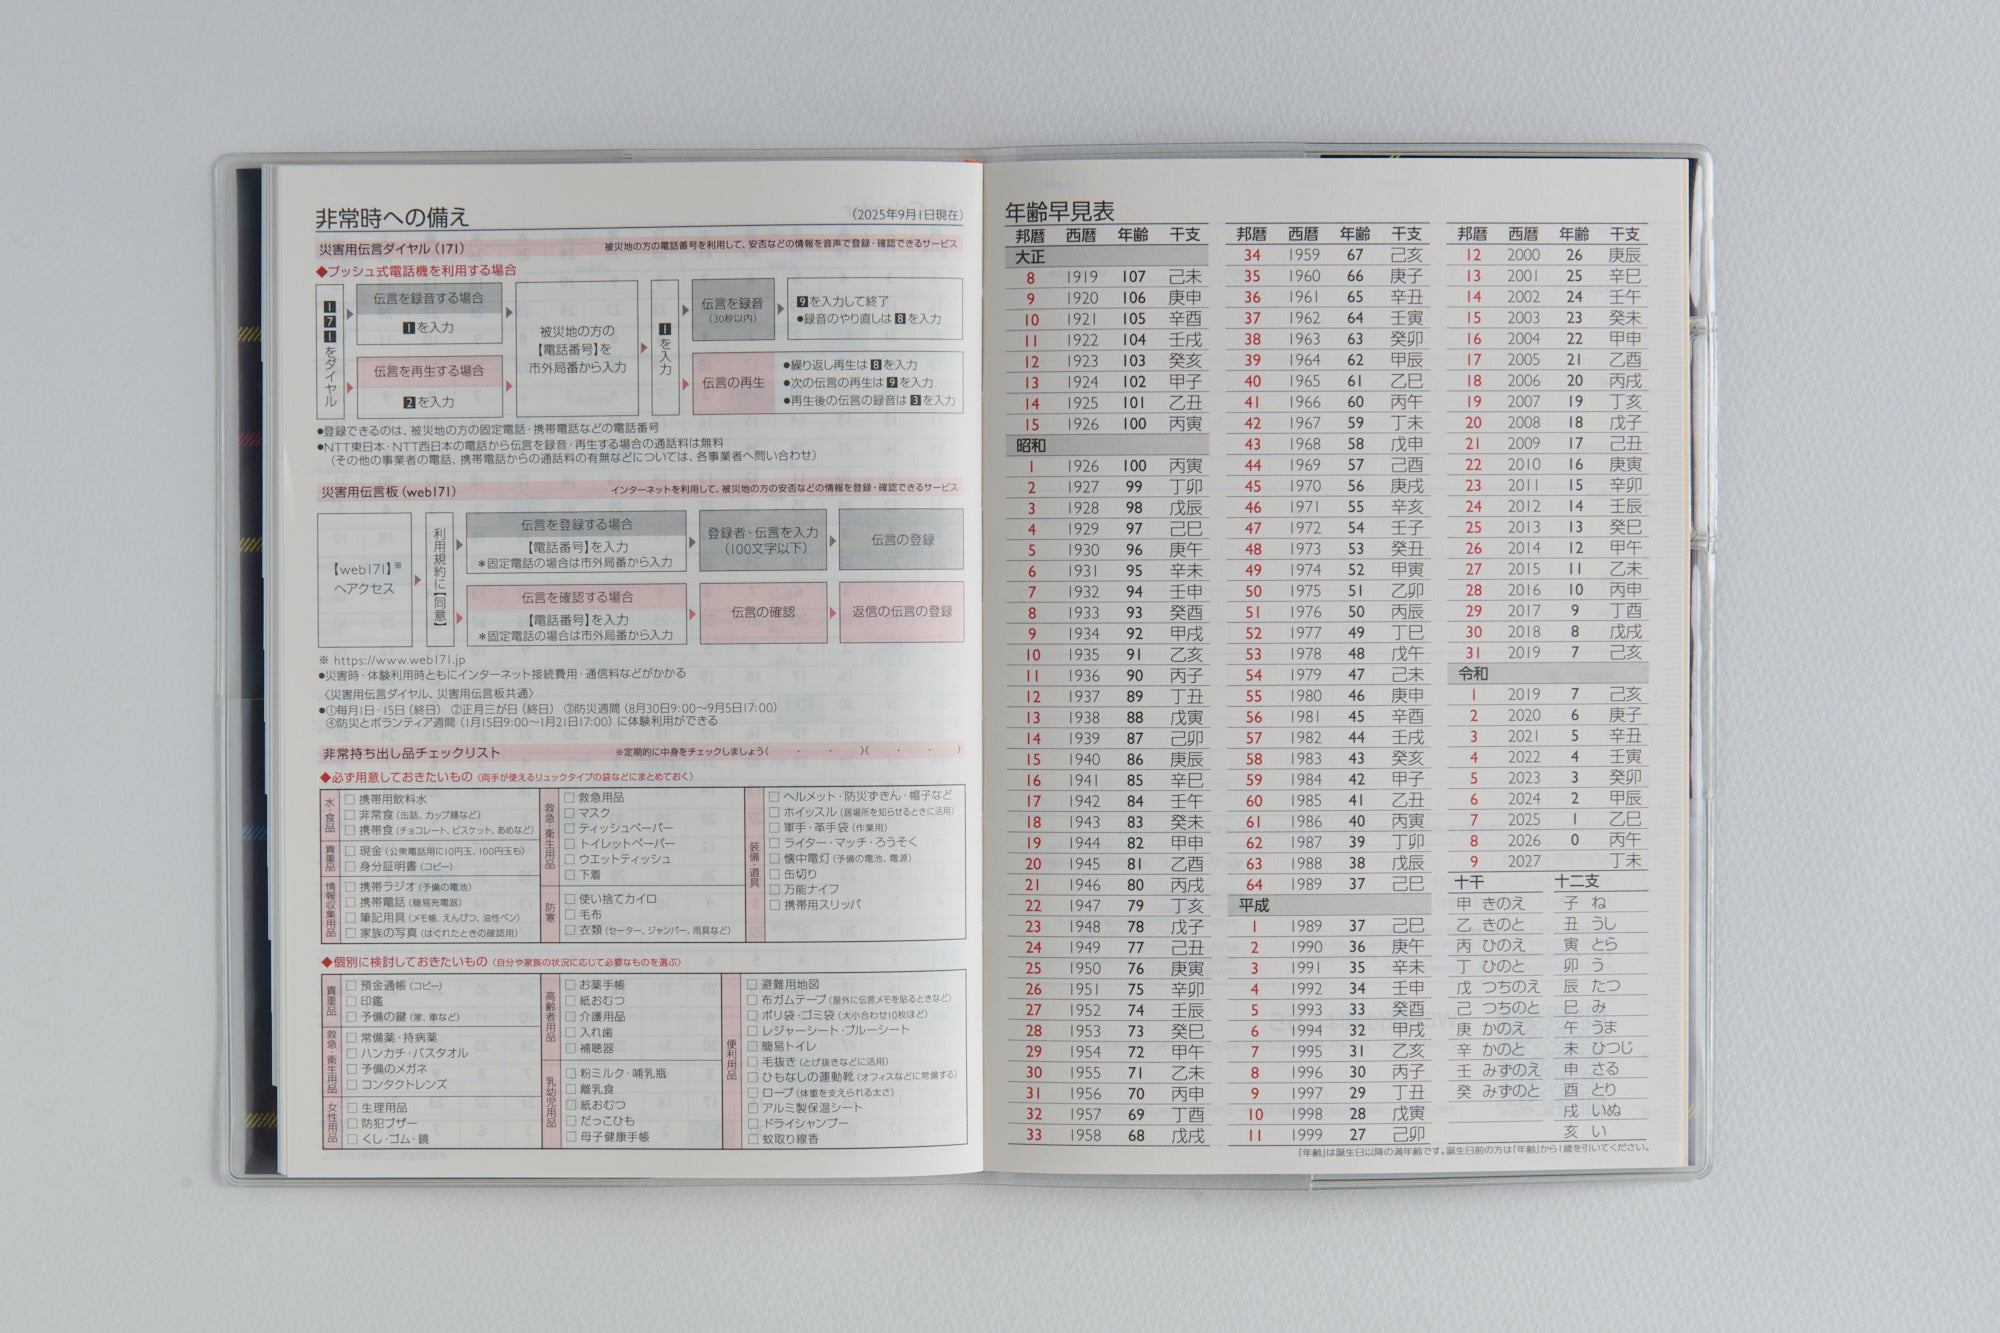 非常時への備え
（2025年9月1日現在）
災害用伝言ダイヤル（171）
被災地の方の電話番号を利用して、安否などの情報を音声で登録・確認できるサービス
◆プッシュ式電話機を利用する場合
171をダイヤル
伝言を録音する場合
1を入力
伝言を再生する場合
2を入力
被災地の方の
【電話番号】を
市外局番から入力
1を入力
伝言を録音
（30秒以内）
9を入力して終了
●録音のやり直しは8を入力
伝言の再生
●繰り返し再生は8を入力
●次の伝言の再生は9を入力
●再生後の伝言の録音は3を入力
●登録できるのは、被災地の方の固定電話・携帯電話などの電話番号
●NTT東日本・NTT西日本の電話から伝言を録音・再生する場合の通話料は無料
（その他の事業者の電話、携帯電話からの通話料の有無などについては、各事業者へ問い合わせ）
災害用伝言板（web171）
インターネットを利用して、被災地の方の安否などの情報を登録・確認できるサービス
【web171】※
へアクセス
利用規約に【同意】
伝言を登録する場合
【電話番号】を入力
＊固定電話の場合は市外局番から入力
登録者・伝言を入力
（100文字以下）
伝言の登録
伝言を確認する場合
【電話番号】を入力
＊固定電話の場合は市外局番から入力
伝言の確認
返信の伝言の登録
※ https://www.web171.jp
●災害時・体験利用時ともにインターネット接続費用・通信料などがかかる
〈災害用伝言ダイヤル、災害用伝言板共通〉
●①毎月1日・15日（終日） ②正月三が日（終日） ③防災週間（8月30日9:00～9月5日17:00）
④防災とボランティア週間（1月15日9:00～1月21日17:00）に体験利用ができる
非常持ち出し品チェックリスト
※定期的に中身をチェックしましょう（ ・ ・ ）（ ・ ・ ）
◆必ず用意しておきたいもの〈両手が使えるリュックタイプの袋などにまとめておく〉
水・食品
□ 携帯用飲料水
□ 非常食（缶詰、カップ麺など）
□ 携帯食（チョコレート、ビスケット、あめなど）
貴重品
□ 現金（公衆電話用に10円玉、100円玉も）
□ 身分証明書（コピー）
情報収集用品
□ 携帯ラジオ（予備の電池）
□ 携帯電話（簡易充電器）
□ 筆記用具（メモ帳、えんぴつ、油性ペン）
□ 家族の写真（はぐれたときの確認用）
救急・衛生用品
□ 救急用品
□ マスク
□ ティッシュペーパー
□ トイレットペーパー
□ ウエットティッシュ
□ 下着
防寒
□ 使い捨てカイロ
□ 毛布
□ 衣類（セーター、ジャンパー、雨具など）
装備・道具
□ ヘルメット・防災ずきん・帽子など
□ ホイッスル（居場所を知らせるときに活用）
□ 軍手・革手袋（作業用）
□ ライター・マッチ・ろうそく
□ 懐中電灯（予備の電池、電源）
□ 缶切り
□ 万能ナイフ
□ 携帯用スリッパ
◆個別に検討しておきたいもの〈自分や家族の状況に応じて必要なものを選ぶ〉
貴重品
□ 預金通帳（コピー）
□ 印鑑
□ 予備の鍵（家、車など）
救急・衛生用品
□ 常備薬・持病薬
□ ハンカチ・バスタオル
□ 予備のメガネ
□ コンタクトレンズ
女性用品
□ 生理用品
□ 防犯ブザー
□ くし・ゴム・鏡
高齢者用品
□ お薬手帳
□ 紙おむつ
□ 介護用品
□ 入れ歯
□ 補聴器
乳幼児用品
□ 粉ミルク・哺乳瓶
□ 離乳食
□ 紙おむつ
□ だっこひも
□ 母子健康手帳
便利用品
□ 避難用地図
□ 布ガムテープ（屋外に伝言メモを貼るときなど）
□ ポリ袋・ゴミ袋（大小合わせ10枚ほど）
□ レジャーシート・ブルーシート
□ 簡易トイレ
□ 毛抜き（とげ抜きなどに活用）
□ ひもなしの運動靴（オフィスなどに常備する）
□ ロープ（体重を支えられる太さ）
□ アルミ製保温シート
□ ドライシャンプー
□ 蚊取り線香
年齢早見表
邦暦 西暦 年齢 干支
大正
8 1919 107 己未
9 1920 106 庚申
10 1921 105 辛酉
11 1922 104 壬戌
12 1923 103 癸亥
13 1924 102 甲子
14 1925 101 乙丑
15 1926 100 丙寅
昭和
1 1926 100 丙寅
2 1927 99 丁卯
3 1928 98 戊辰
4 1929 97 己巳
5 1930 96 庚午
6 1931 95 辛未
7 1932 94 壬申
8 1933 93 癸酉
9 1934 92 甲戌
10 1935 91 乙亥
11 1936 90 丙子
12 1937 89 丁丑
13 1938 88 戊寅
14 1939 87 己卯
15 1940 86 庚辰
16 1941 85 辛巳
17 1942 84 壬午
18 1943 83 癸未
19 1944 82 甲申
20 1945 81 乙酉
21 1946 80 丙戌
22 1947 79 丁亥
23 1948 78 戊子
24 1949 77 己丑
25 1950 76 庚寅
26 1951 75 辛卯
27 1952 74 壬辰
28 1953 73 癸巳
29 1954 72 甲午
30 1955 71 乙未
31 1956 70 丙申
32 1957 69 丁酉
33 1958 68 戊戌
邦暦 西暦 年齢 干支
34 1959 67 己亥
35 1960 66 庚子
36 1961 65 辛丑
37 1962 64 壬寅
38 1963 63 癸卯
39 1964 62 甲辰
40 1965 61 乙巳
41 1966 60 丙午
42 1967 59 丁未
43 1968 58 戊申
44 1969 57 己酉
45 1970 56 庚戌
46 1971 55 辛亥
47 1972 54 壬子
48 1973 53 癸丑
49 1974 52 甲寅
50 1975 51 乙卯
51 1976 50 丙辰
52 1977 49 丁巳
53 1978 48 戊午
54 1979 47 己未
55 1980 46 庚申
56 1981 45 辛酉
57 1982 44 壬戌
58 1983 43 癸亥
59 1984 42 甲子
60 1985 41 乙丑
61 1986 40 丙寅
62 1987 39 丁卯
63 1988 38 戊辰
64 1989 37 己巳
平成
1 1989 37 己巳
2 1990 36 庚午
3 1991 35 辛未
4 1992 34 壬申
5 1993 33 癸酉
6 1994 32 甲戌
7 1995 31 乙亥
8 1996 30 丙子
9 1997 29 丁丑
10 1998 28 戊寅
11 1999 27 己卯
邦暦 西暦 年齢 干支
12 2000 26 庚辰
13 2001 25 辛巳
14 2002 24 壬午
15 2003 23 癸未
16 2004 22 甲申
17 2005 21 乙酉
18 2006 20 丙戌
19 2007 19 丁亥
20 2008 18 戊子
21 2009 17 己丑
22 2010 16 庚寅
23 2011 15 辛卯
24 2012 14 壬辰
25 2013 13 癸巳
26 2014 12 甲午
27 2015 11 乙未
28 2016 10 丙申
29 2017 9 丁酉
30 2018 8 戊戌
31 2019 7 己亥
令和
1 2019 7 己亥
2 2020 6 庚子
3 2021 5 辛丑
4 2022 4 壬寅
5 2023 3 癸卯
6 2024 2 甲辰
7 2025 1 乙巳
8 2026 0 丙午
9 2027 丁未
十干 十二支
甲 きのえ 子 ね
乙 きのと 丑 うし
丙 ひのえ 寅 とら
丁 ひのと 卯 う
戊 つちのえ 辰 たつ
己 つちのと 巳 み
庚 かのえ 午 うま
辛 かのと 未 ひつじ
壬 みずのえ 申 さる
癸 みずのと 酉 とり
戌 いぬ
亥 い
「年齢」は誕生日以降の満年齢です。誕生日前の方は「年齢」から1歳を引いてください。